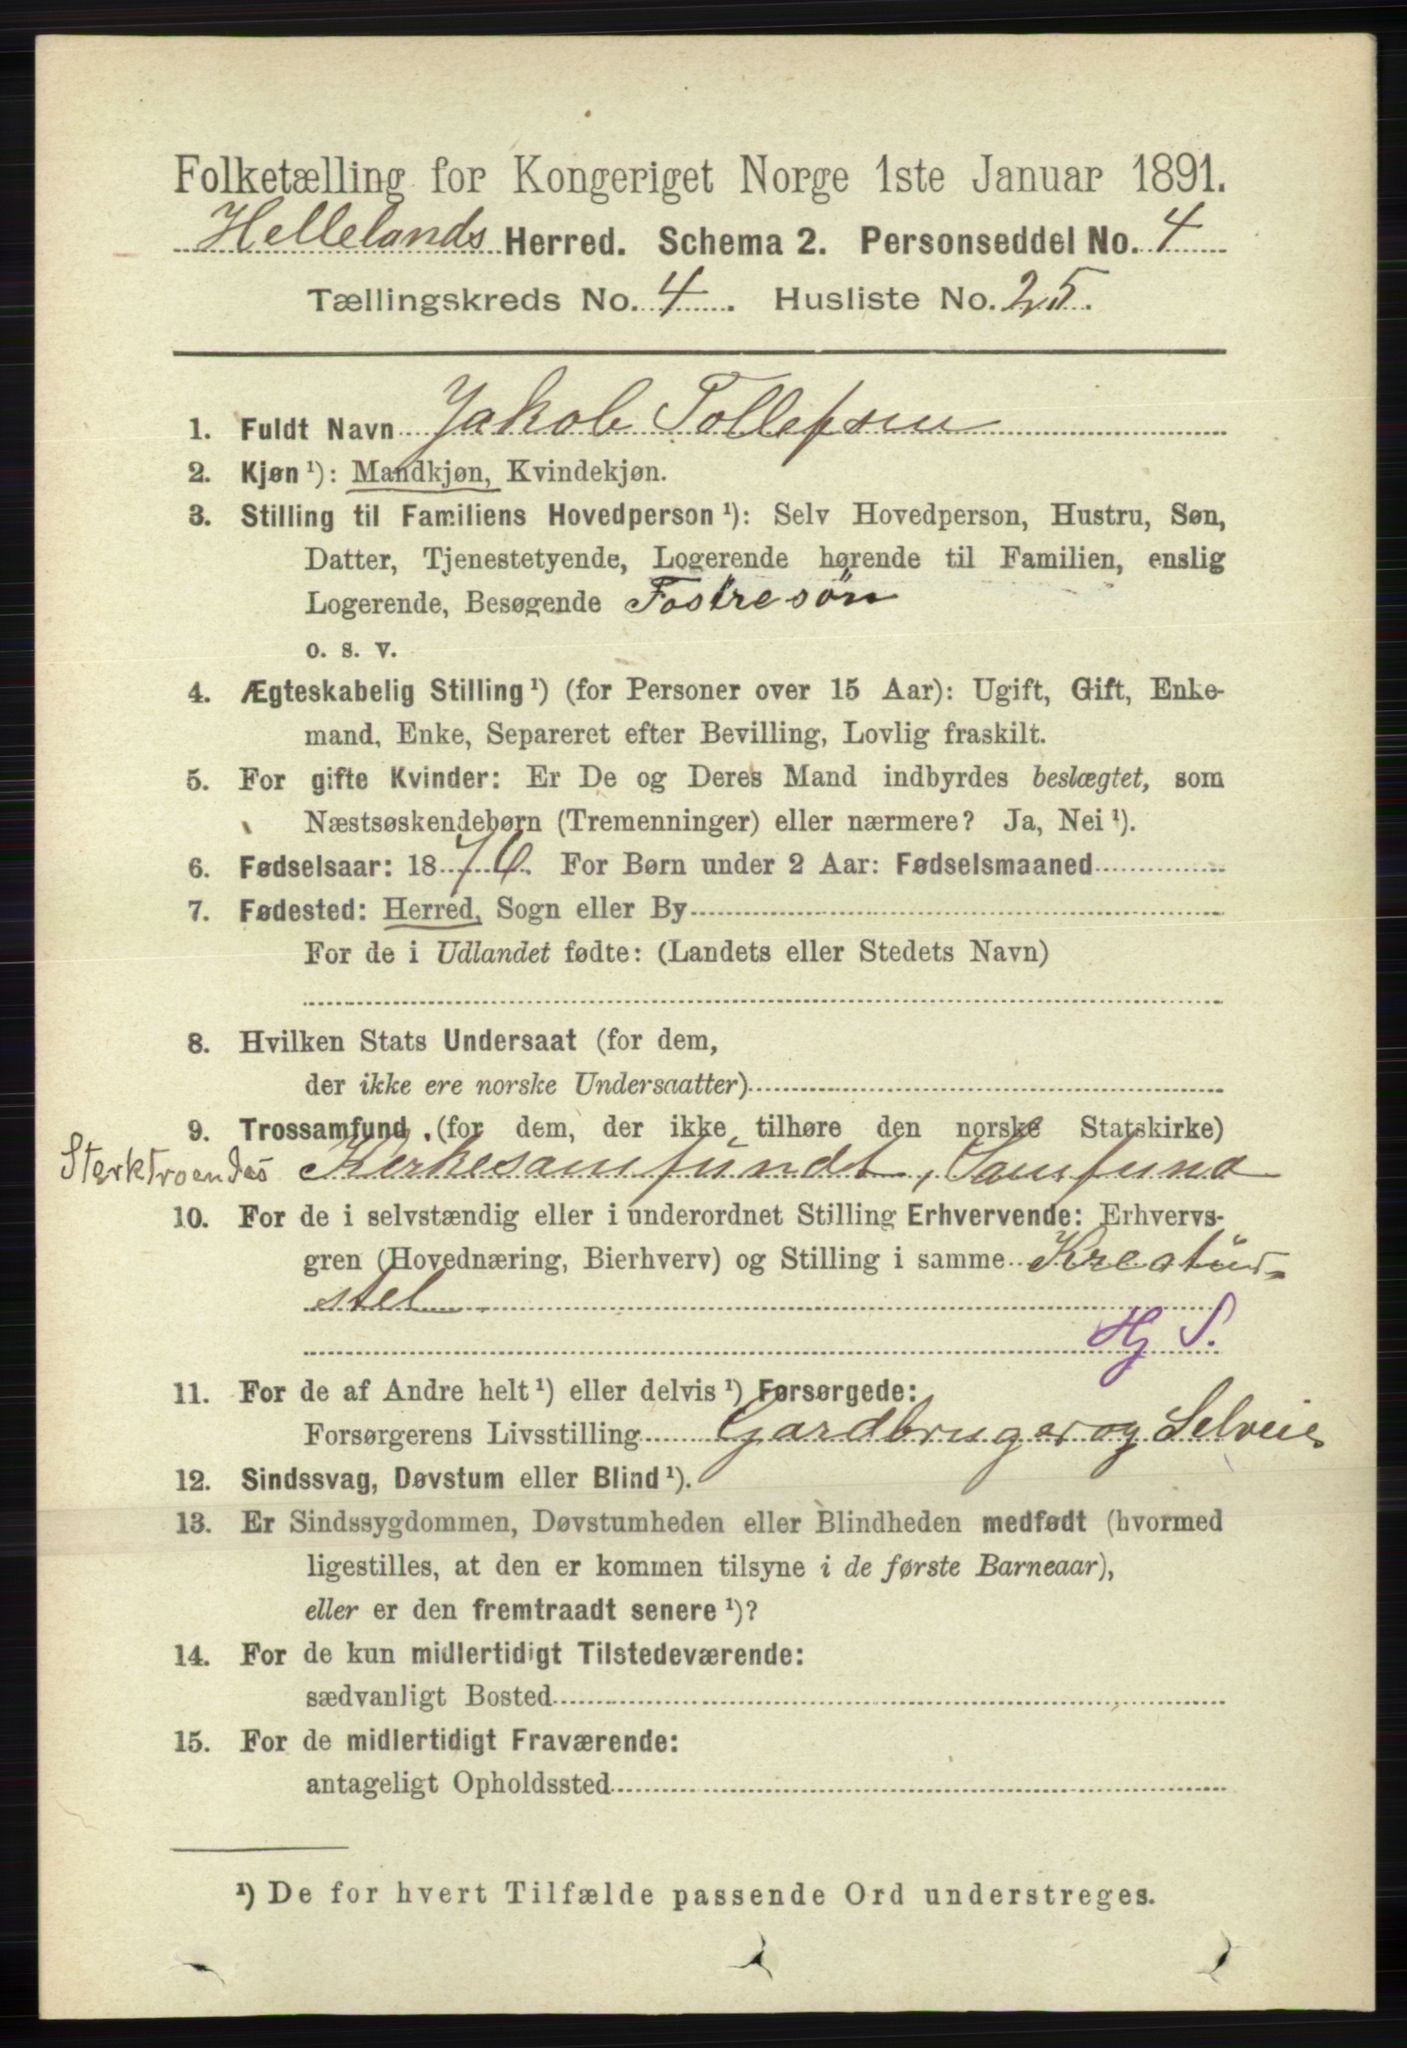 Folketælling for Kongeriget Norge 1ste Januar 1891.
Hellelands Herred. Schema 2. Personseddel No. 4
Tællingskreds No. 4. Husliste No. 25.
1. Fuldt Navn Jakob Tollefsen
2. Kjøn ¹): Mandkjøn, Kvindekjøn.
3. Stilling til Familiens Hovedperson ¹): Selv Hovedperson, Hustru, Søn,
Datter, Tjenestetyende, Logerende hørende til Familien, enslig
Logerende, Besøgende Fostresön
o. s. v.
4. Ægteskabelig Stilling ¹) (for Personer over 15 Aar): Ugift, Gift, Enke-
mand, Enke, Separeret efter Bevilling, Lovlig fraskilt.
5. For gifte Kvinder: Er De og Deres Mand indbyrdes beslægtet, som
Næstsøskendebørn (Tremenninger) eller nærmere? Ja, Nei ¹).
6. Fødselsaar: 1876. For Børn under 2 Aar: Fødselsmaaned
7. Fødested: Herred, Sogn eller By
For de i Udlandet fødte: (Landets eller Stedets Navn)
8. Hvilken Stats Undersaat (for dem,
der ikke ere norske Undersaatter)
9. Trossamfund (for dem, der ikke tilhøre den norske Statskirke)
Sterktroendes Kerkesamfundt, Samfund
10. For de i selvstændig eller i underordnet Stilling Erhvervende: Erhvervs-
gren (Hovednæring, Bierhverv) og Stilling i samme Kreatür-
stel
Hj S.
11. For de af Andre helt ¹) eller delvis ¹) Forsørgede:
Forsørgerens Livsstilling Gardbruger og Selveie
12. Sindssvag, Døvstum eller Blind ¹).
13. Er Sindssygdommen, Døvstumheden eller Blindheden medfødt (hvormed
ligestilles, at den er kommen tilsyne i de første Barneaar),
eller er den fremtraadt senere ¹)?
14. For de kun midlertidigt Tilstedeværende:
sædvanligt Bosted
15. For de midlertidigt Fraværende:
antageligt Opholdssted
¹) De for hvert Tilfælde passende Ord understreges.